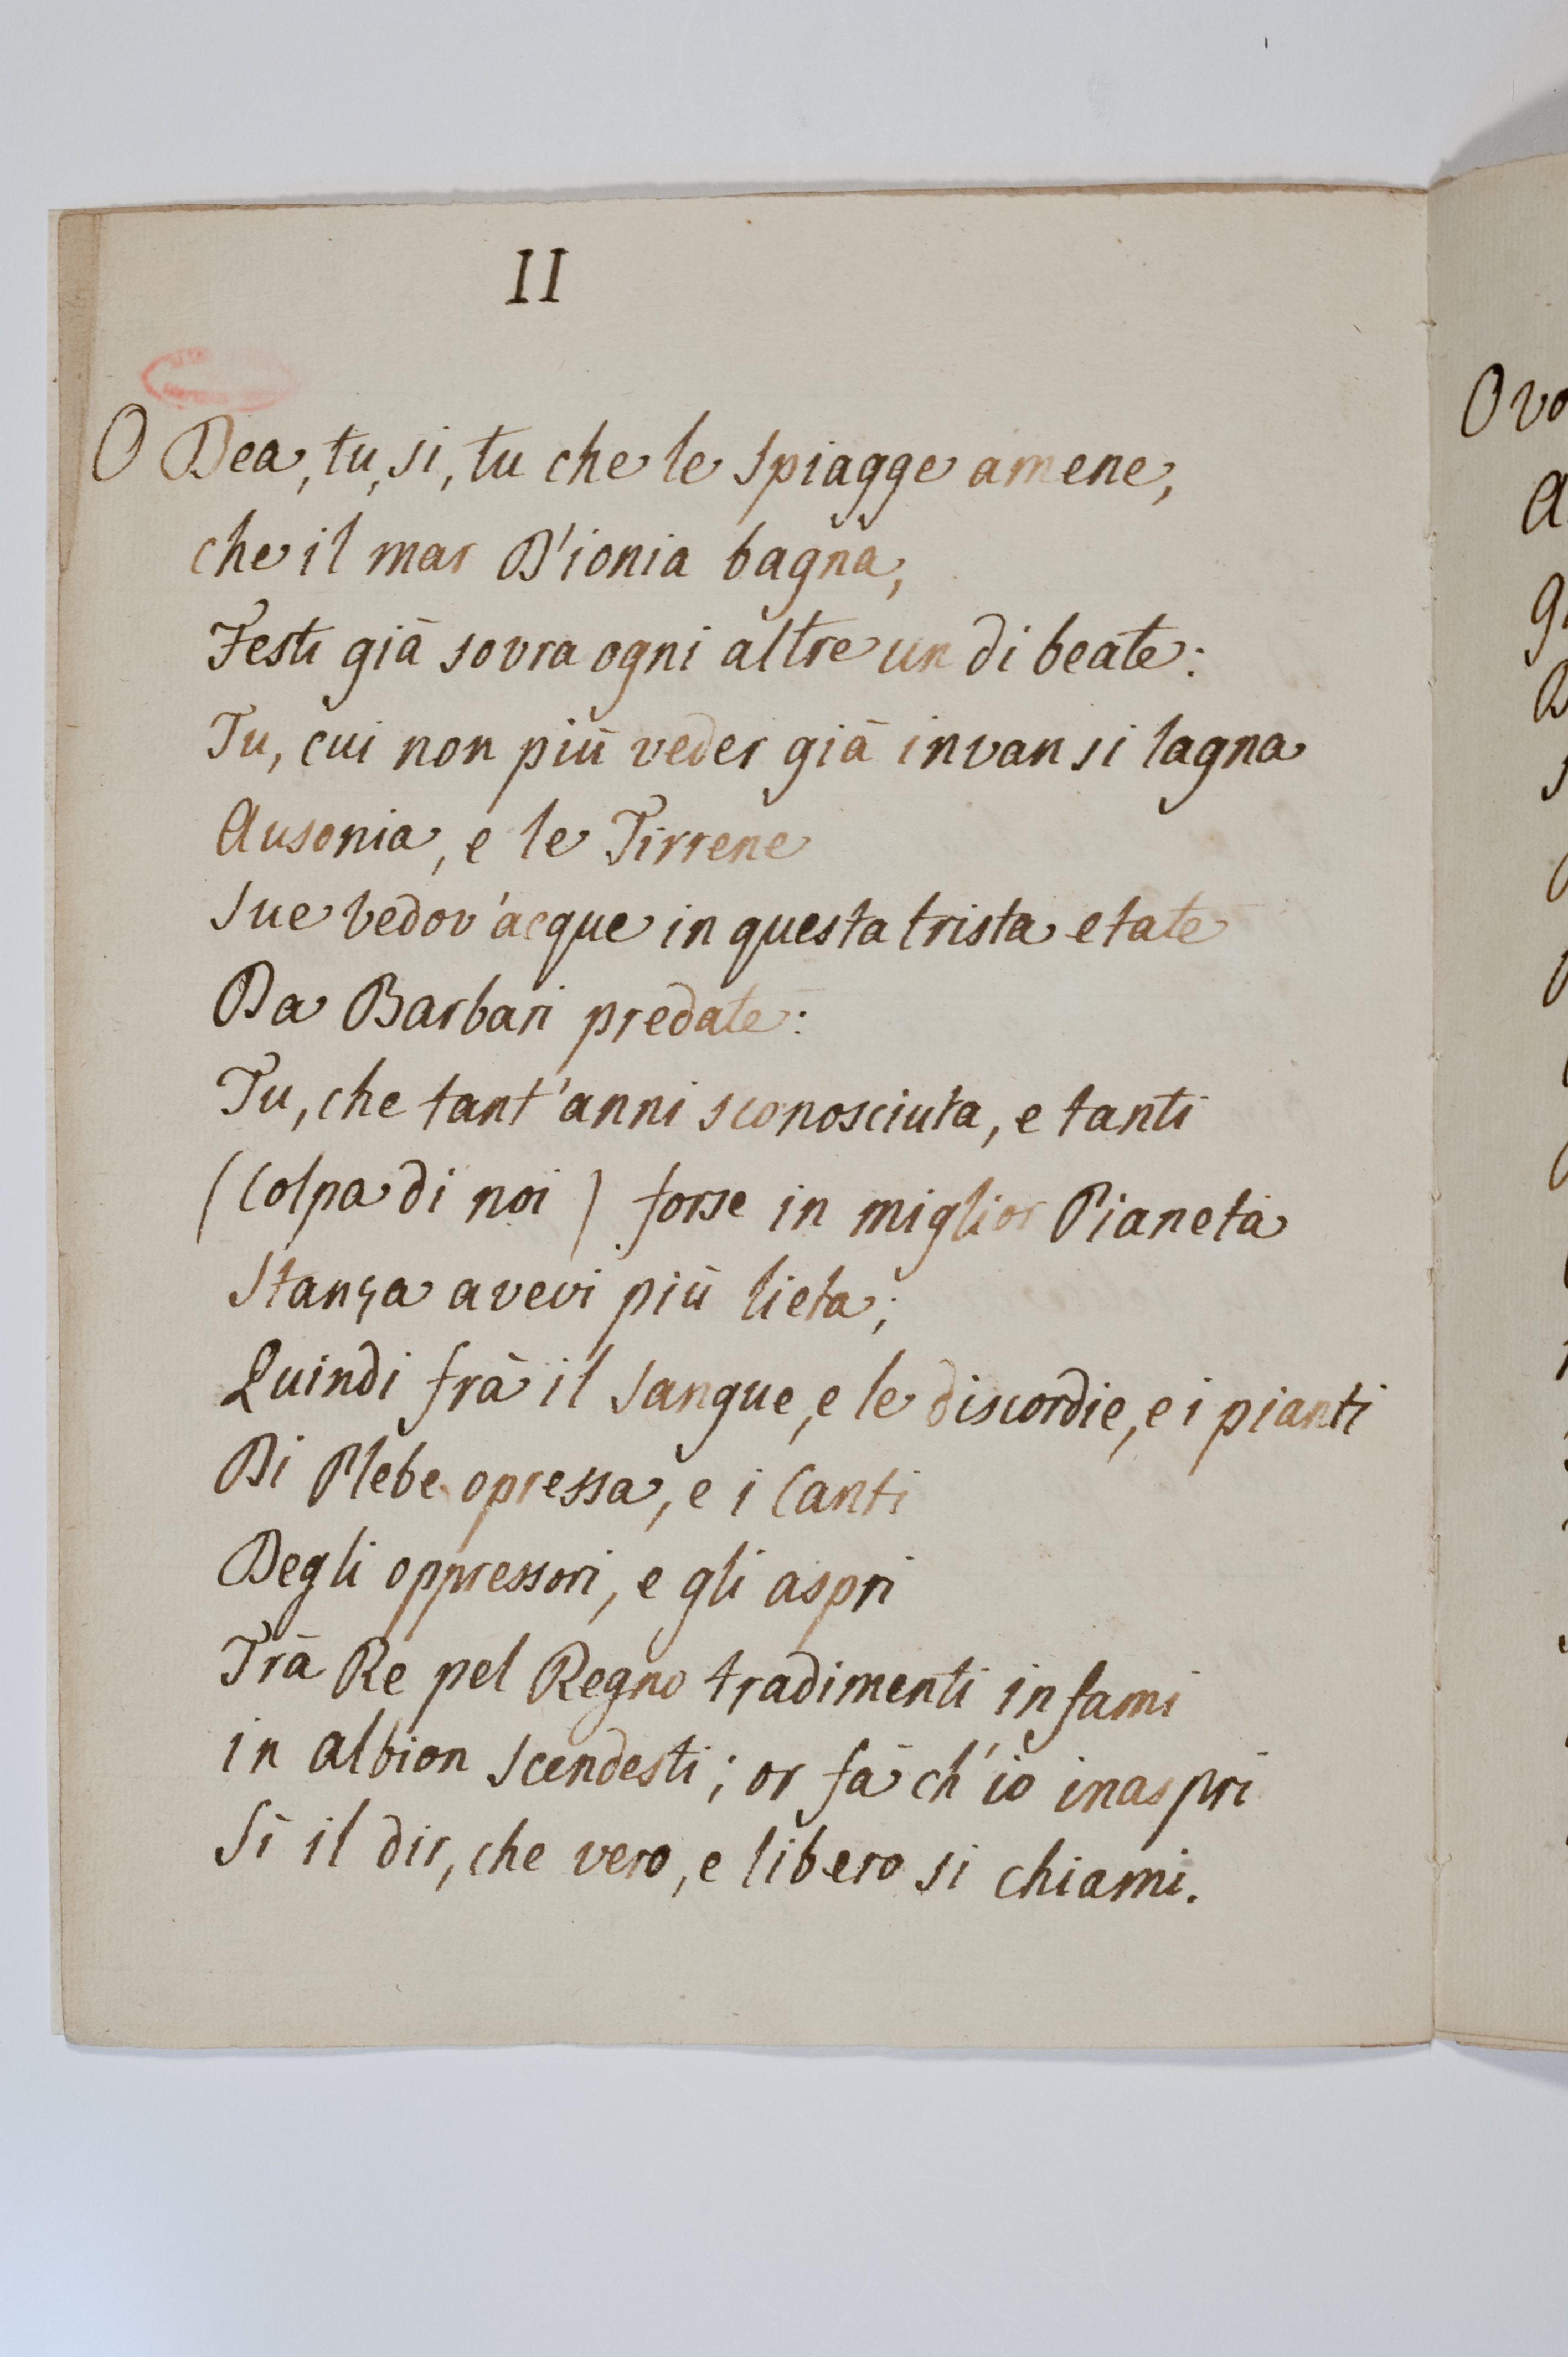 II
O Dea, tu, si, tu che le spiagge amene,
che il mar D'ionia bagna,
Festi già sovra ogni altre un di beate:
Tu, cui non più veder già invan si lagna
Ausonia, e le Tirrene
Sue vedov'acque in questa trista etate
Da Barbari predate:
Tu, che tant'anni sconosciuta, e tanti
(Colpa di noi) forse in miglior Pianeta
Stanza avevi più lieta;
Quindi frà il sangue, e le discordie, e i pianti
Di Plebe opressa, e i Canti
Degli oppressori, e gli aspri
Trà Re pel Regno tradimenti infami
in albion scendesti; or fà ch'io inaspri
Sì il dir, che vero, e libero si chiami.
O vo